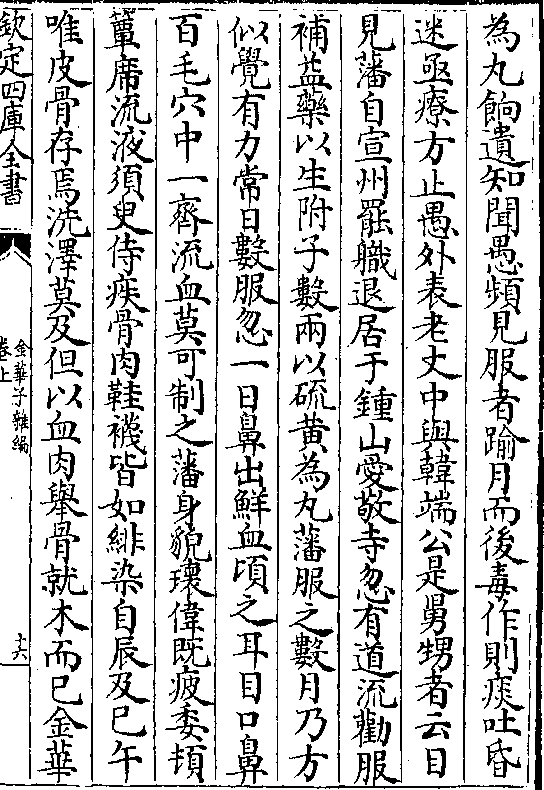 為丸餉遺知聞愚頻見服者踰月而後毒作則痰吐昏
迷亟療方止愚外表老丈中與韓端公是舅甥者云目
見藩自宣州罷職退居于鍾山愛敬寺忽有道流勸服
補益藥以生附子數兩以硫黄為丸藩服之數月乃方
似覺有力常日數服忽一日鼻出鮮血頃之耳目口鼻
百毛穴中一齊流血莫可制之藩身貌瓌偉既疲委頓
簟席流液須臾侍疾骨肉鞋襪皆如緋染自辰及巳午
唯皮骨存焉洗澤莫及但以血肉舉骨就木而已金華
欽定四庫全書
金華子雜編
卷上
十六